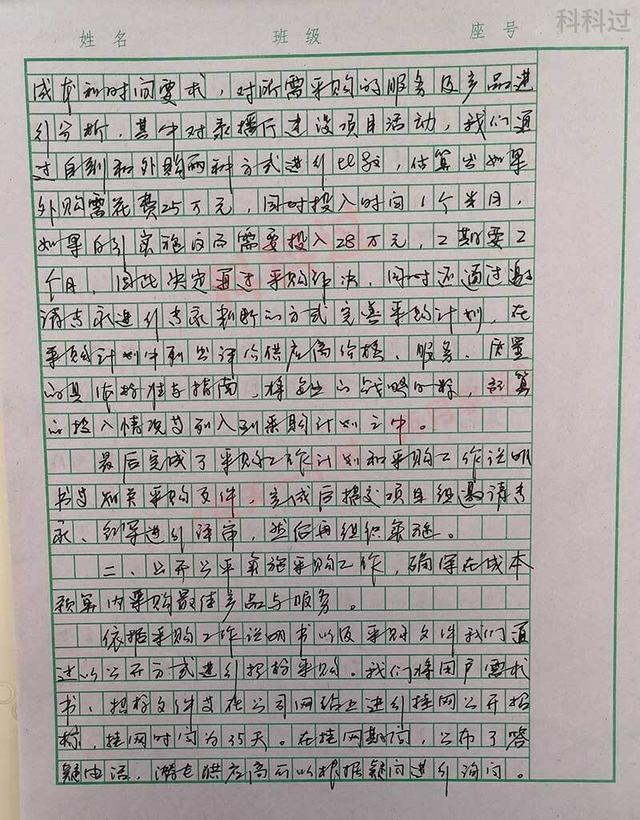 科科过
姓名 班级 座号
成本和时间要求，对所需采购的服务及产品进
行分析，其中对录播厅建设项目活动，我们通
过自制和外购两种方式进行比较，估算出如果
外购需花费25万元，同时投入时间1个半月，
如果自行实施反而需要投入28万元，工期要2
个月，因此决定通过采购解决，同时还通过邀
请专家进行专家判断的方式完善采购计划，在
采购计划中列出评价供应商价格、服务、质量
的具体标准与指南，将的战略目标，预算
的投入情况等列入到采购计划之中。
最后完成了采购工作计划和采购工作说明
书等相关采购文件，完成后提交项目组邀请专
家、领导进行评审，然后再组织实施。
二、公开公平实施采购工作，确保在成本
预算内采购最佳产品与服务。
依据采购工作说明书以及采购文件我们通
过以公开方式进行招标采购。我们将用户需求
书、招标文件等在公司网络上进行挂网公开招
标，挂网时间为35天。在挂网期间，公布了答
疑电话，潜在供应商可以根据疑问进行询问。